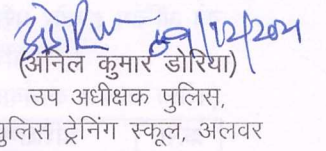 09/12/2021
(अनिल कुमार डोरिया)
उप अधीक्षक पुलिस,
पुलिस ट्रेनिंग स्कूल, अलवर